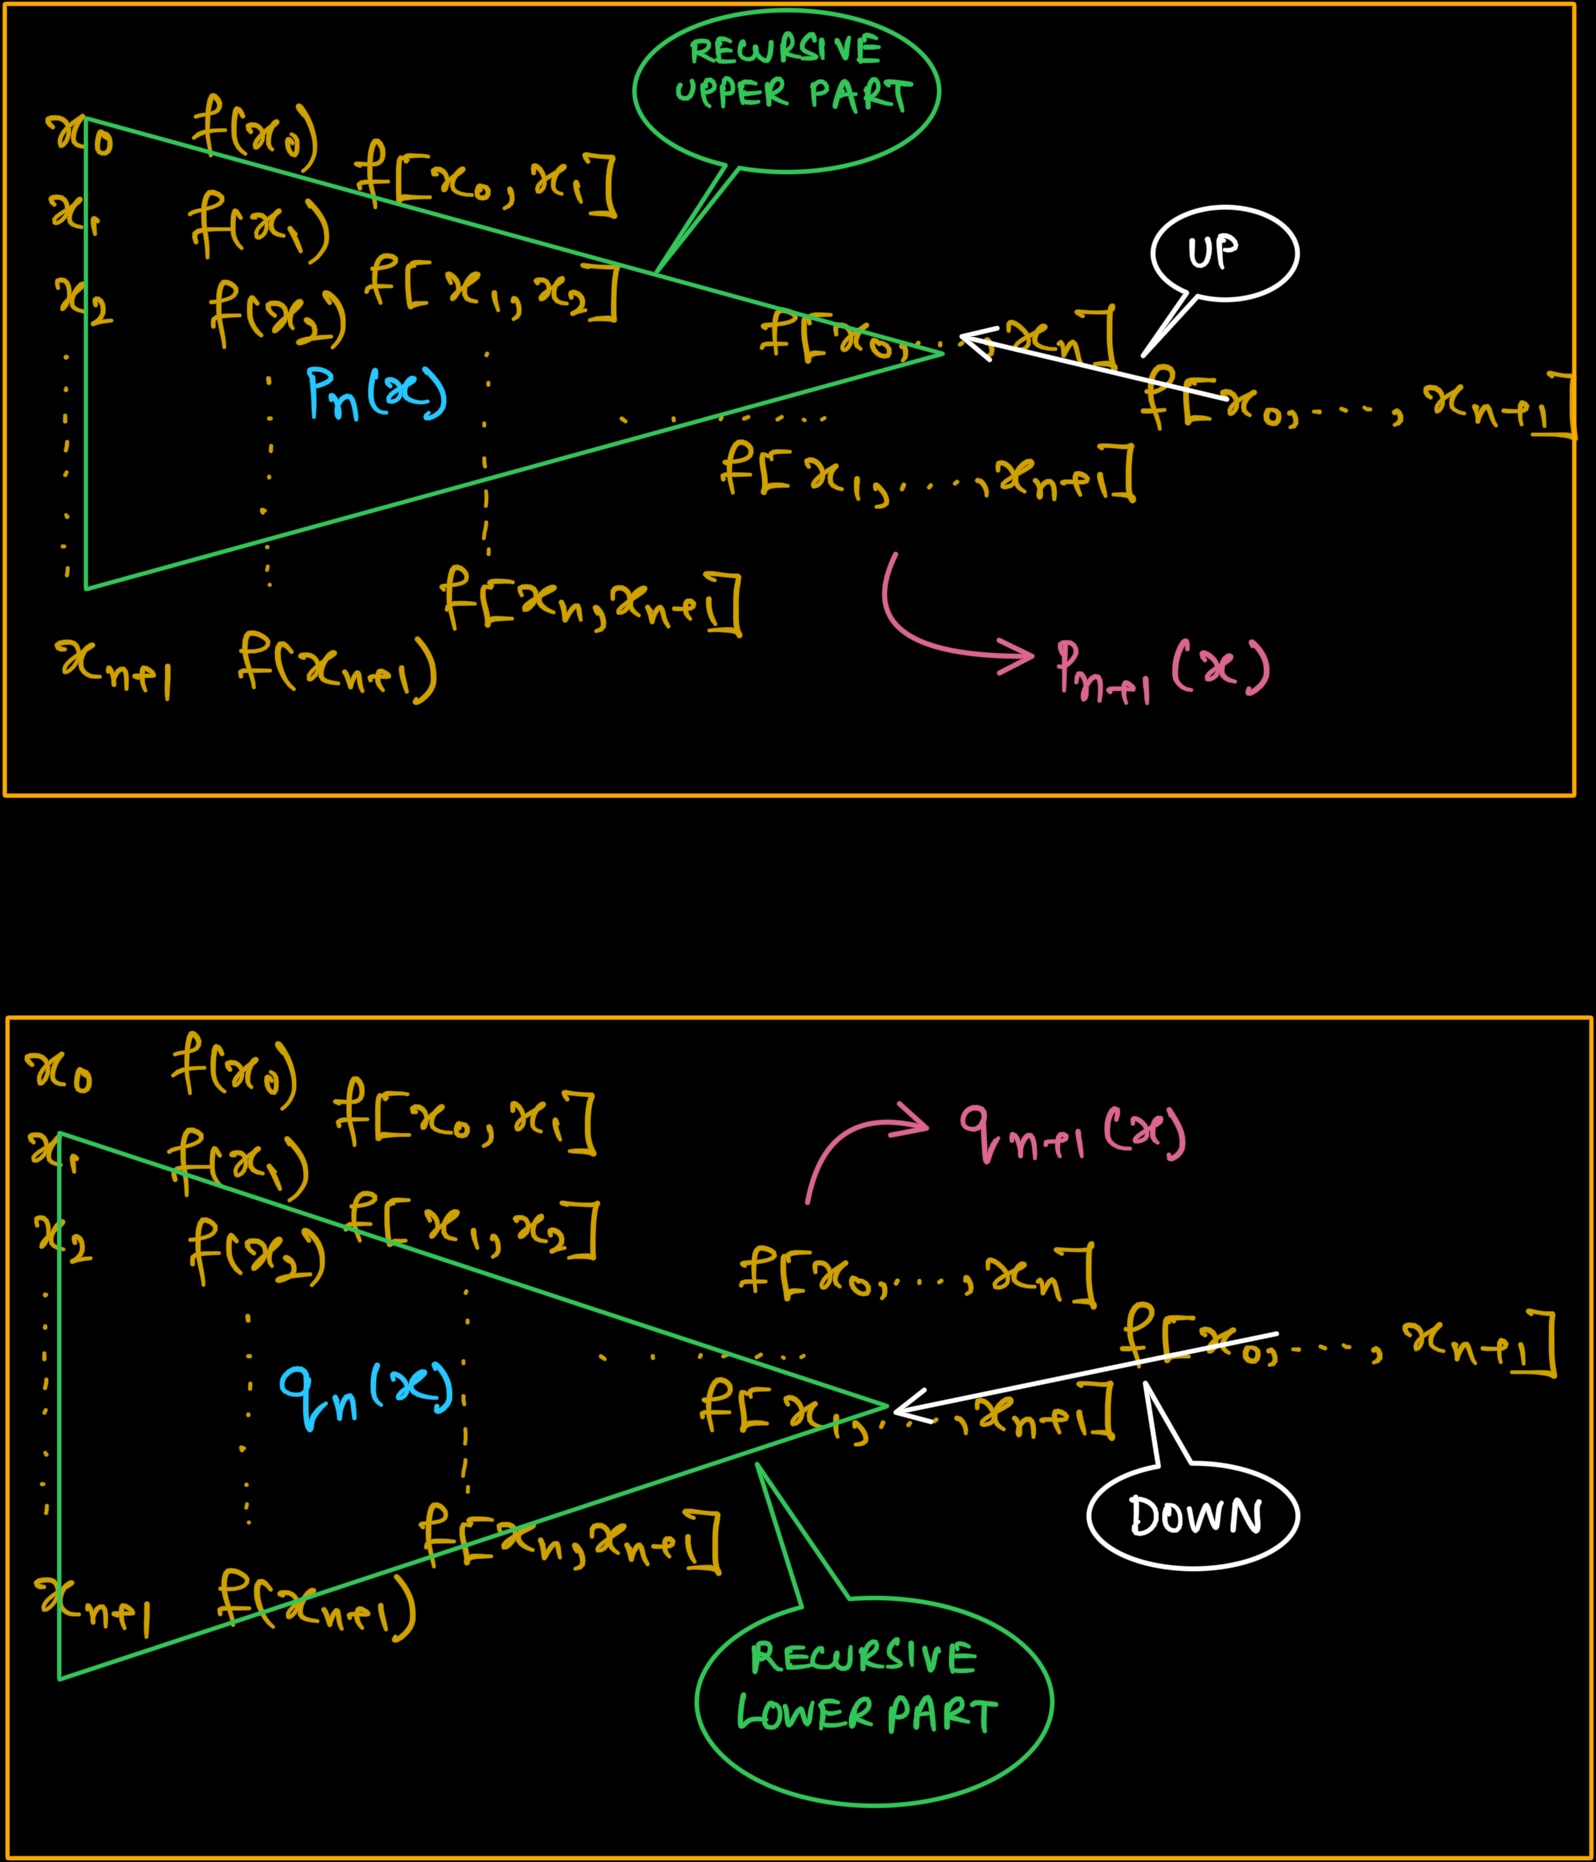 RECURSIVE
UPPER PART
x₀ f(x₀)
f[x₀, x₁]
x₁ f(x₁)
UP
f[x₁, x₂]
x₂ f(x₂)
f[x₀, ..., xₙ]
pₙ(x)
f[x₀, ..., xₙ₊₁]
f[x₁, ..., xₙ₊₁]
f[xₙ, xₙ₊₁]
xₙ₊₁ f(xₙ₊₁)
pₙ₊₁(x)
x₀ f(x₀)
f[x₀, x₁]
qₙ₊₁(x)
x₁ f(x₁)
f[x₁, x₂]
x₂ f(x₂)
f[x₀, ..., xₙ]
f[x₀, ..., xₙ₊₁]
qₙ(x)
f[x₁, ..., xₙ₊₁]
DOWN
f[xₙ, xₙ₊₁]
xₙ₊₁ f(xₙ₊₁)
RECURSIVE
LOWER PART